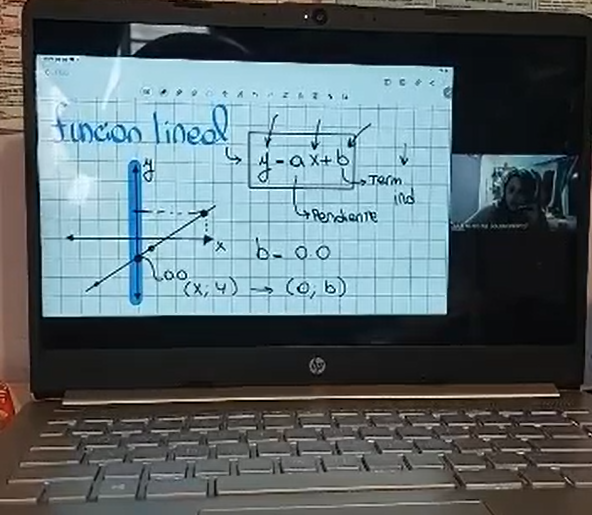 funcion lineal
y = ax + b
Term
ind
Pendiente
y
x
0.0
b = 0.0
(x, y) → (0, b)
hp